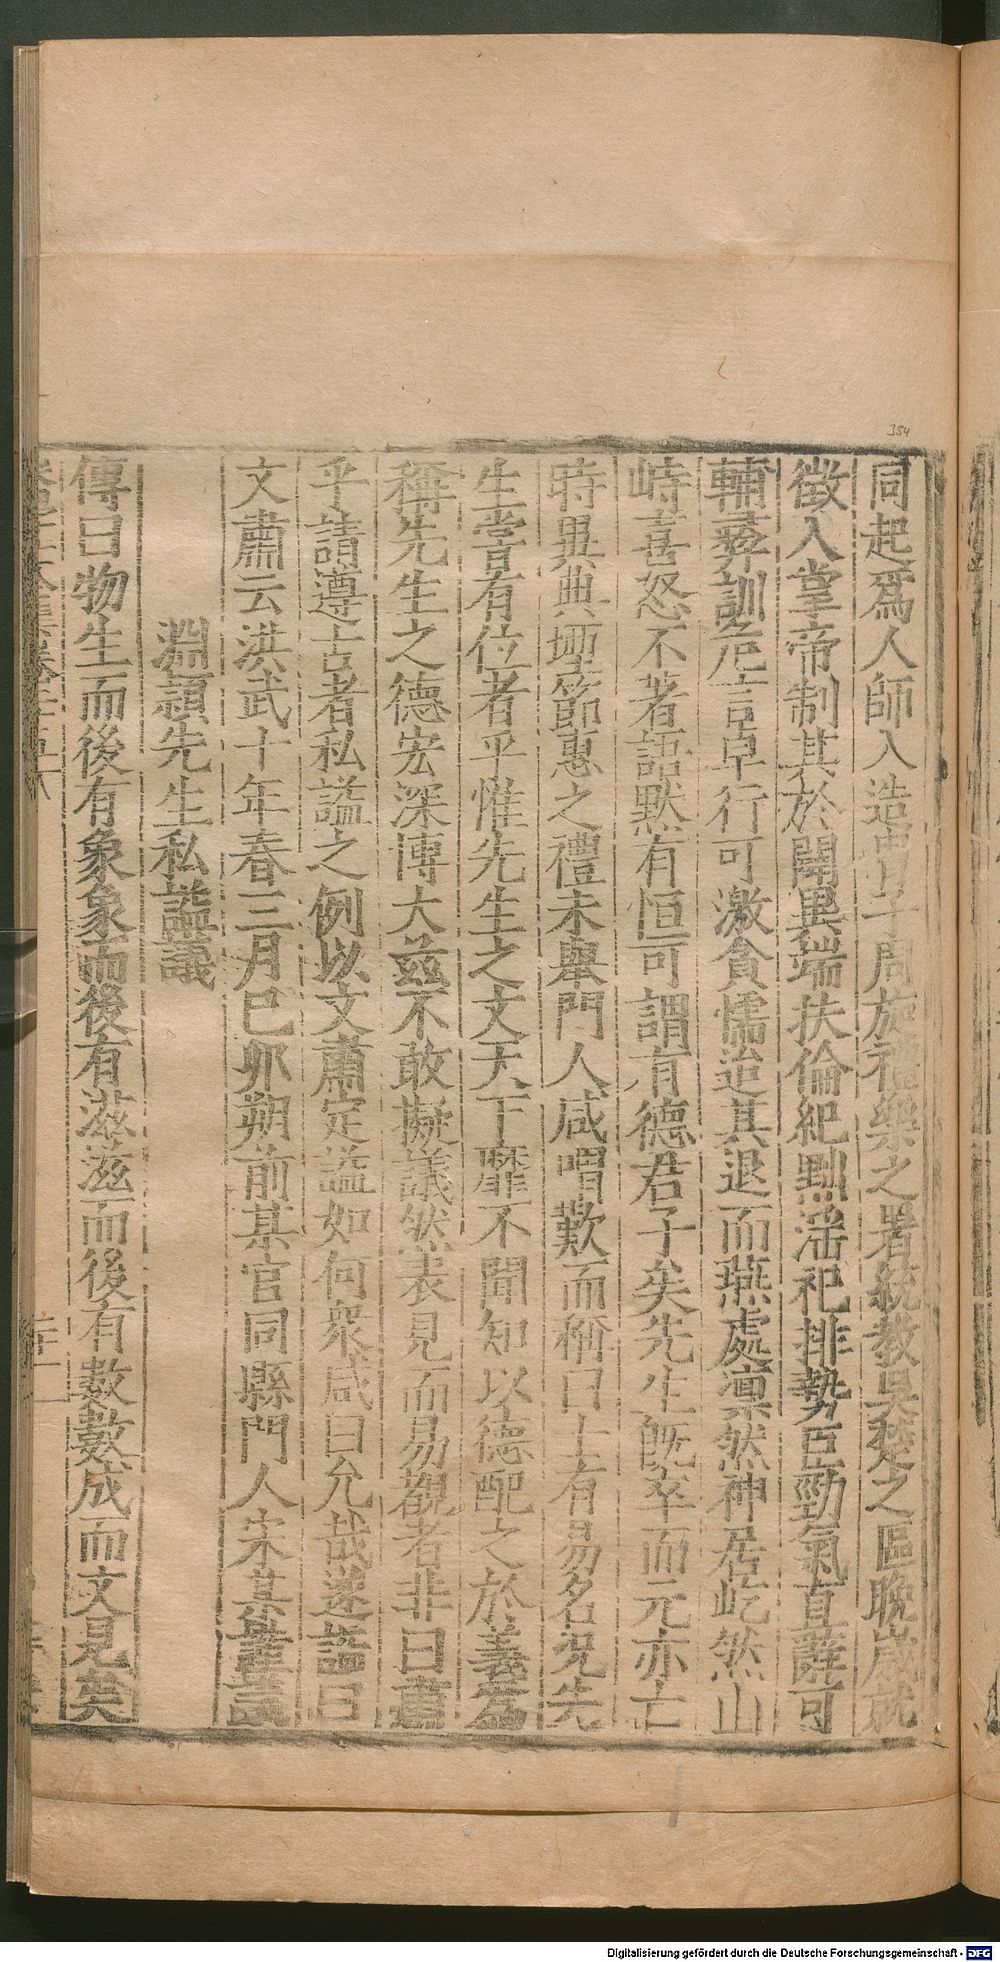 354
同起爲人師入造申士子周旋禮樂之署統教吳楚之區晩歲就
徵入掌帝制其於闢異端扶倫紀黜滛祀排勢臣勁氣直辭可
輔彞訓危言卓行可激貪懦迨其退而燕處凛然神居屹然山
峙喜怒不著語默有恒可謂有德君子矣先生旣卒而元亦亡
時異典堙節惠之禮未舉門人咸喟歎而稱曰士有易名況先
生甞有位者乎惟先生之文天下靡不聞知以德配之於義爲
稱先生之德宏深博大兹不敢擬議然表見而易觀者非曰肅
乎請遵古者私謚之例以文肅定謚如何衆咸曰允哉遂謚曰
文肅云洪武十年春三月己卯朔前某官同縣門人宋某謹議
淵穎先生私謚議
傳曰物生而後有象象而後有滋滋而後有數數成而文見矣
Digitalisierung gefördert durch die Deutsche Forschungsgemeinschaft - DFG